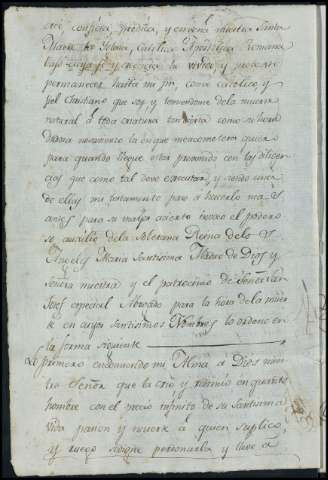 creé, confiesa, predica, y enseña nuestra Santa
Madre la Iglesia, Catolica Apostolica Romana
bajo cuya fe y creencia he vivido y protesto
permanecer hasta mi fin, como Catolico, y
fiel Christiano que soy y temeroso de la muerte
natural á toda criatura tan como su hora
para quando llegue estar prevenido con las diligen-
cias que como tal devo executar, y siendo una
de ellas mi testamento paso á hacerlo mas
antes para su mayor acierto invoco el podero
so auxilio de la Soberana Reina de los
Angeles Maria Santissima Madre de Dios y
señora nuestra y el patrocinio de Señor San
Josef especial Abogado para la hora de la muer
te en cuyos Santissimos Nombres lo ordeno en
la forma siguiente
Lo primero encomiendo mi Alma á Dios nues
tro Señor que la crio y redimio en quanto
hombre con el precio infinito de su Santissima
vida pasion y muerte á quien suplico,
y ruego se digne perdonarla y llevar á